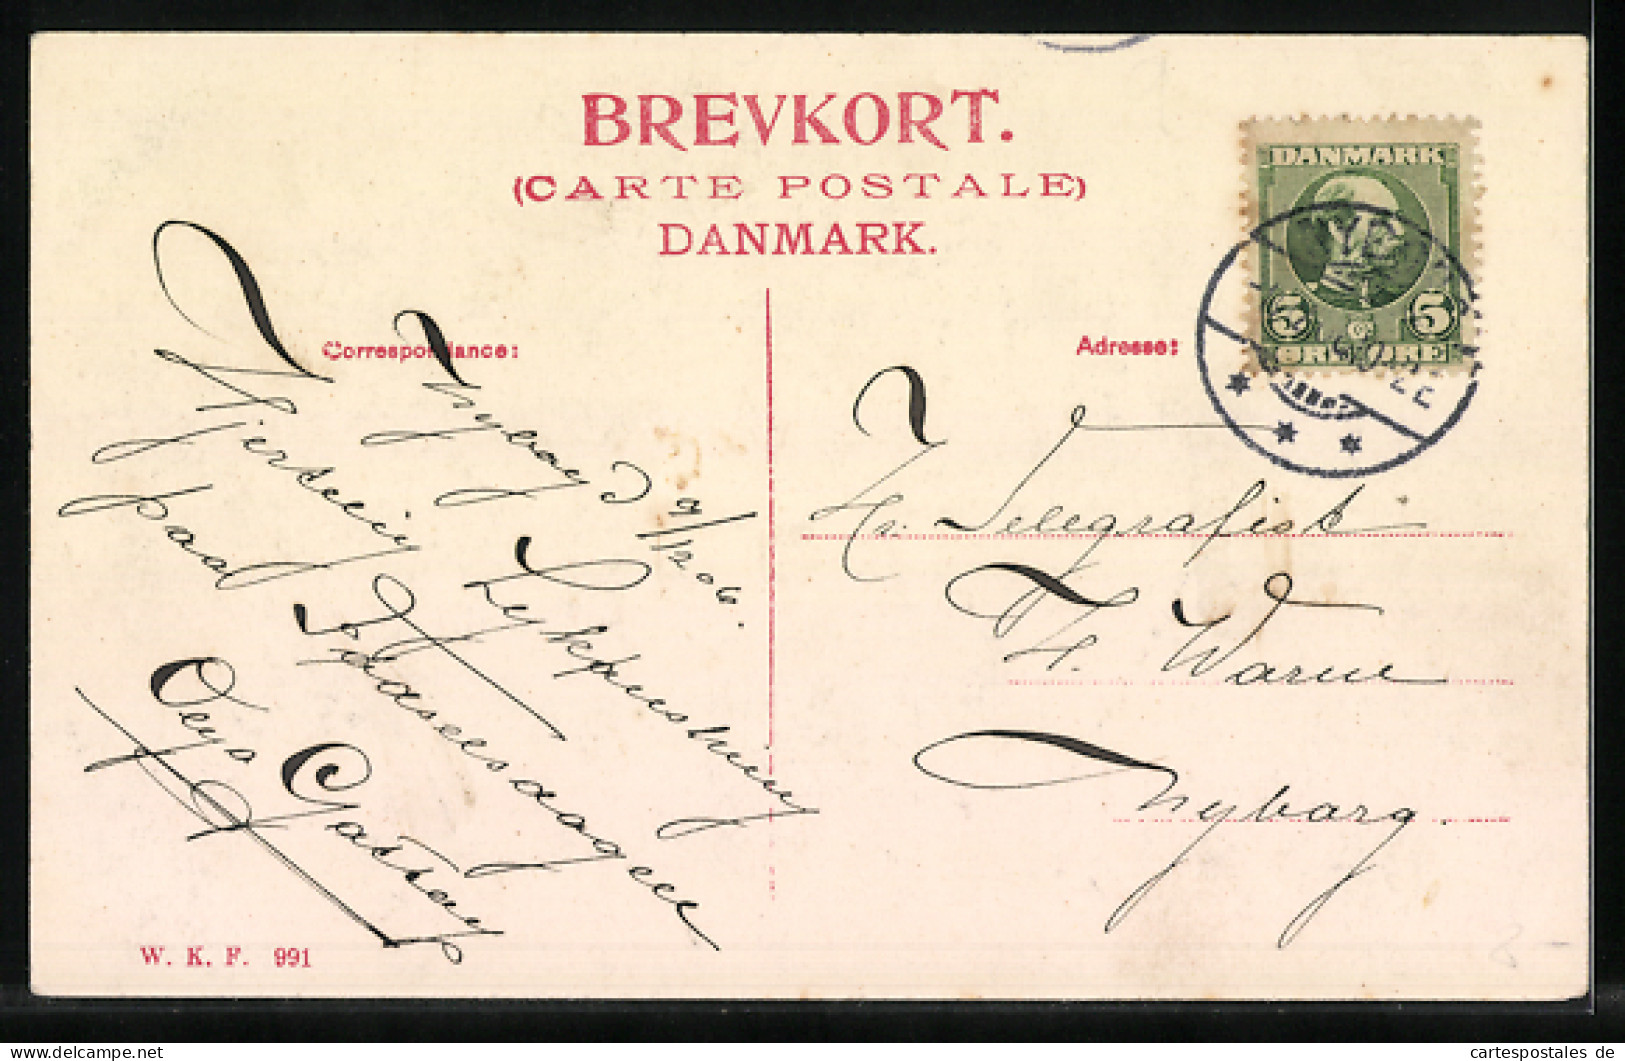 BREVKORT.
(CARTE POSTALE)
DANMARK.
DANMARK
5 5
ØRE ØRE
Correspondance:
Adresse:
Nyborg d 9/12 06.
Hjertelig Lykønskning
paa Fødselsdagen
Hr. Telegrafist
H. Warne
Nyborg.
W. K. F. 991
cartespostales de